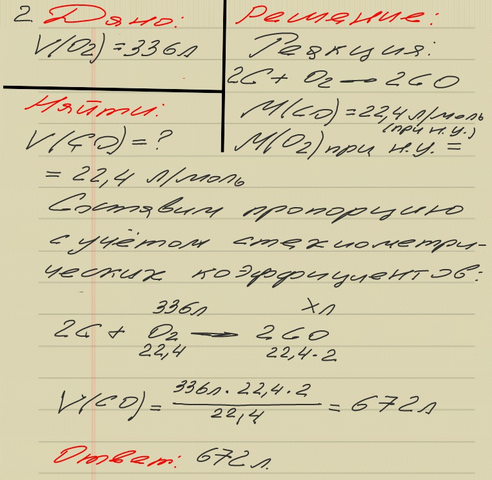 2 Дано:
V(O₂) = 336л
Найти:
V(CO) = ?
Решение:
Реакция:
2C + O₂ → 2CO
M(CO) = 22,4 л/моль
(при н.у.)
M(O₂) при н.у. =
= 22,4 л/моль
Составим пропорцию
с учётом стехиометри-
ческих коэффициентов:
336л xл
2C + O₂ → 2CO
22,4 22,4·2
V(CO) = 336л·22,4·2 / 22,4 = 672л
Ответ: 672л.